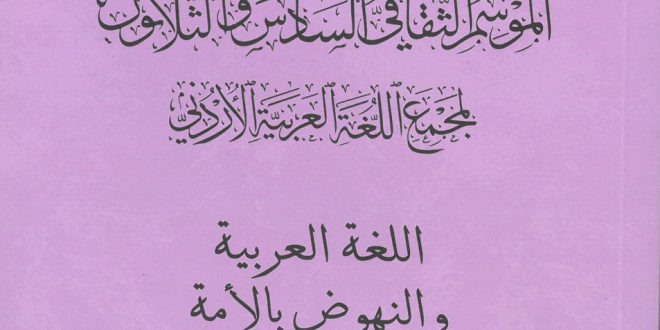 الموسم الثقافي السادس والثلاثون
لمجمع اللغة العربية الأردني
اللغة العربية
والنهوض بالأمة